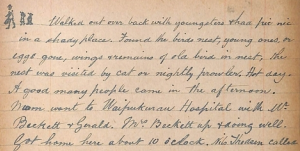 Walked out over back with youngsters & had pic nic
in a shady place. Found the birds nest, young ones or
eggs gone, wings & remains of old bird in nest, the
nest was visited by cat or nightly prowlers. Hot day.
A good many people came in the afternoon.
went to Waipukurau Hospital with Mr
Beckett & Gerald. Mrs Beckett up & doing well.
Got home here about 10 o'clock. called